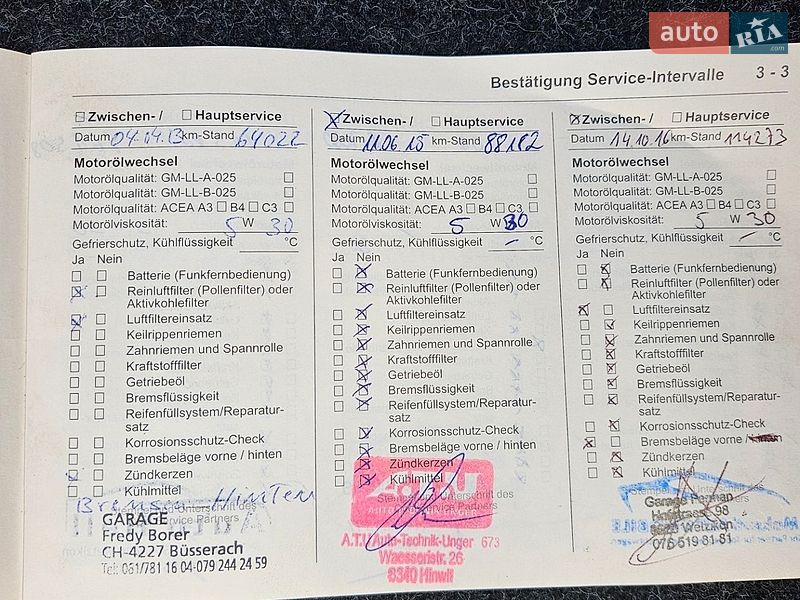 auto RIA .com
Bestätigung Service-Intervalle 3 - 3
Zwischen- / Hauptservice
Datum 04.04.13 km-Stand 64022
Motorölwechsel
Motorölqualität: GM-LL-A-025
Motorölqualität: GM-LL-B-025
Motorölqualität: ACEA A3 B4 C3
Motorölviskosität: 5 W 30
Gefrierschutz, Kühlflüssigkeit °C
Ja Nein
Batterie (Funkfernbedienung)
Reinluftfilter (Pollenfilter) oder
Aktivkohlefilter
Luftfiltereinsatz
Keilrippenriemen
Zahnriemen und Spannrolle
Kraftstofffilter
Getriebeöl
Bremsflüssigkeit
Reifenfüllsystem/Reparatur-
satz
Korrosionsschutz-Check
Bremsbeläge vorne / hinten
Zündkerzen
Kühlmittel
Bremsen Hinten
GARAGE
Fredy Borer
CH-4227 Büsserach
Tel: 061/781 16 04-079 244 24 59
Zwischen- / Hauptservice
Datum 11.06.15 km-Stand 88182
Motorölwechsel
Motorölqualität: GM-LL-A-025
Motorölqualität: GM-LL-B-025
Motorölqualität: ACEA A3 B4 C3
Motorölviskosität: 5 W 30
Gefrierschutz, Kühlflüssigkeit - °C
Ja Nein
Batterie (Funkfernbedienung)
Reinluftfilter (Pollenfilter) oder
Aktivkohlefilter
Luftfiltereinsatz
Keilrippenriemen
Zahnriemen und Spannrolle
Kraftstofffilter
Getriebeöl
Bremsflüssigkeit
Reifenfüllsystem/Reparatur-
satz
Korrosionsschutz-Check
Bremsbeläge vorne / hinten
Zündkerzen
Kühlmittel
A.T.U Auto-Technik-Unger 673
Wässeristr. 26
8340 Hinwil
Zwischen- / Hauptservice
Datum 14.10.16 km-Stand 114273
Motorölwechsel
Motorölqualität: GM-LL-A-025
Motorölqualität: GM-LL-B-025
Motorölqualität: ACEA A3 B4 C3
Motorölviskosität: 5 W 30
Gefrierschutz, Kühlflüssigkeit - °C
Ja Nein
Batterie (Funkfernbedienung)
Reinluftfilter (Pollenfilter) oder
Aktivkohlefilter
Luftfiltereinsatz
Keilrippenriemen
Zahnriemen und Spannrolle
Kraftstofffilter
Getriebeöl
Bremsflüssigkeit
Reifenfüllsystem/Reparatur-
satz
Korrosionsschutz-Check
Bremsbeläge vorne /
Zündkerzen
Kühlmittel
Garage
98
Wetzikon
076 519 81 81